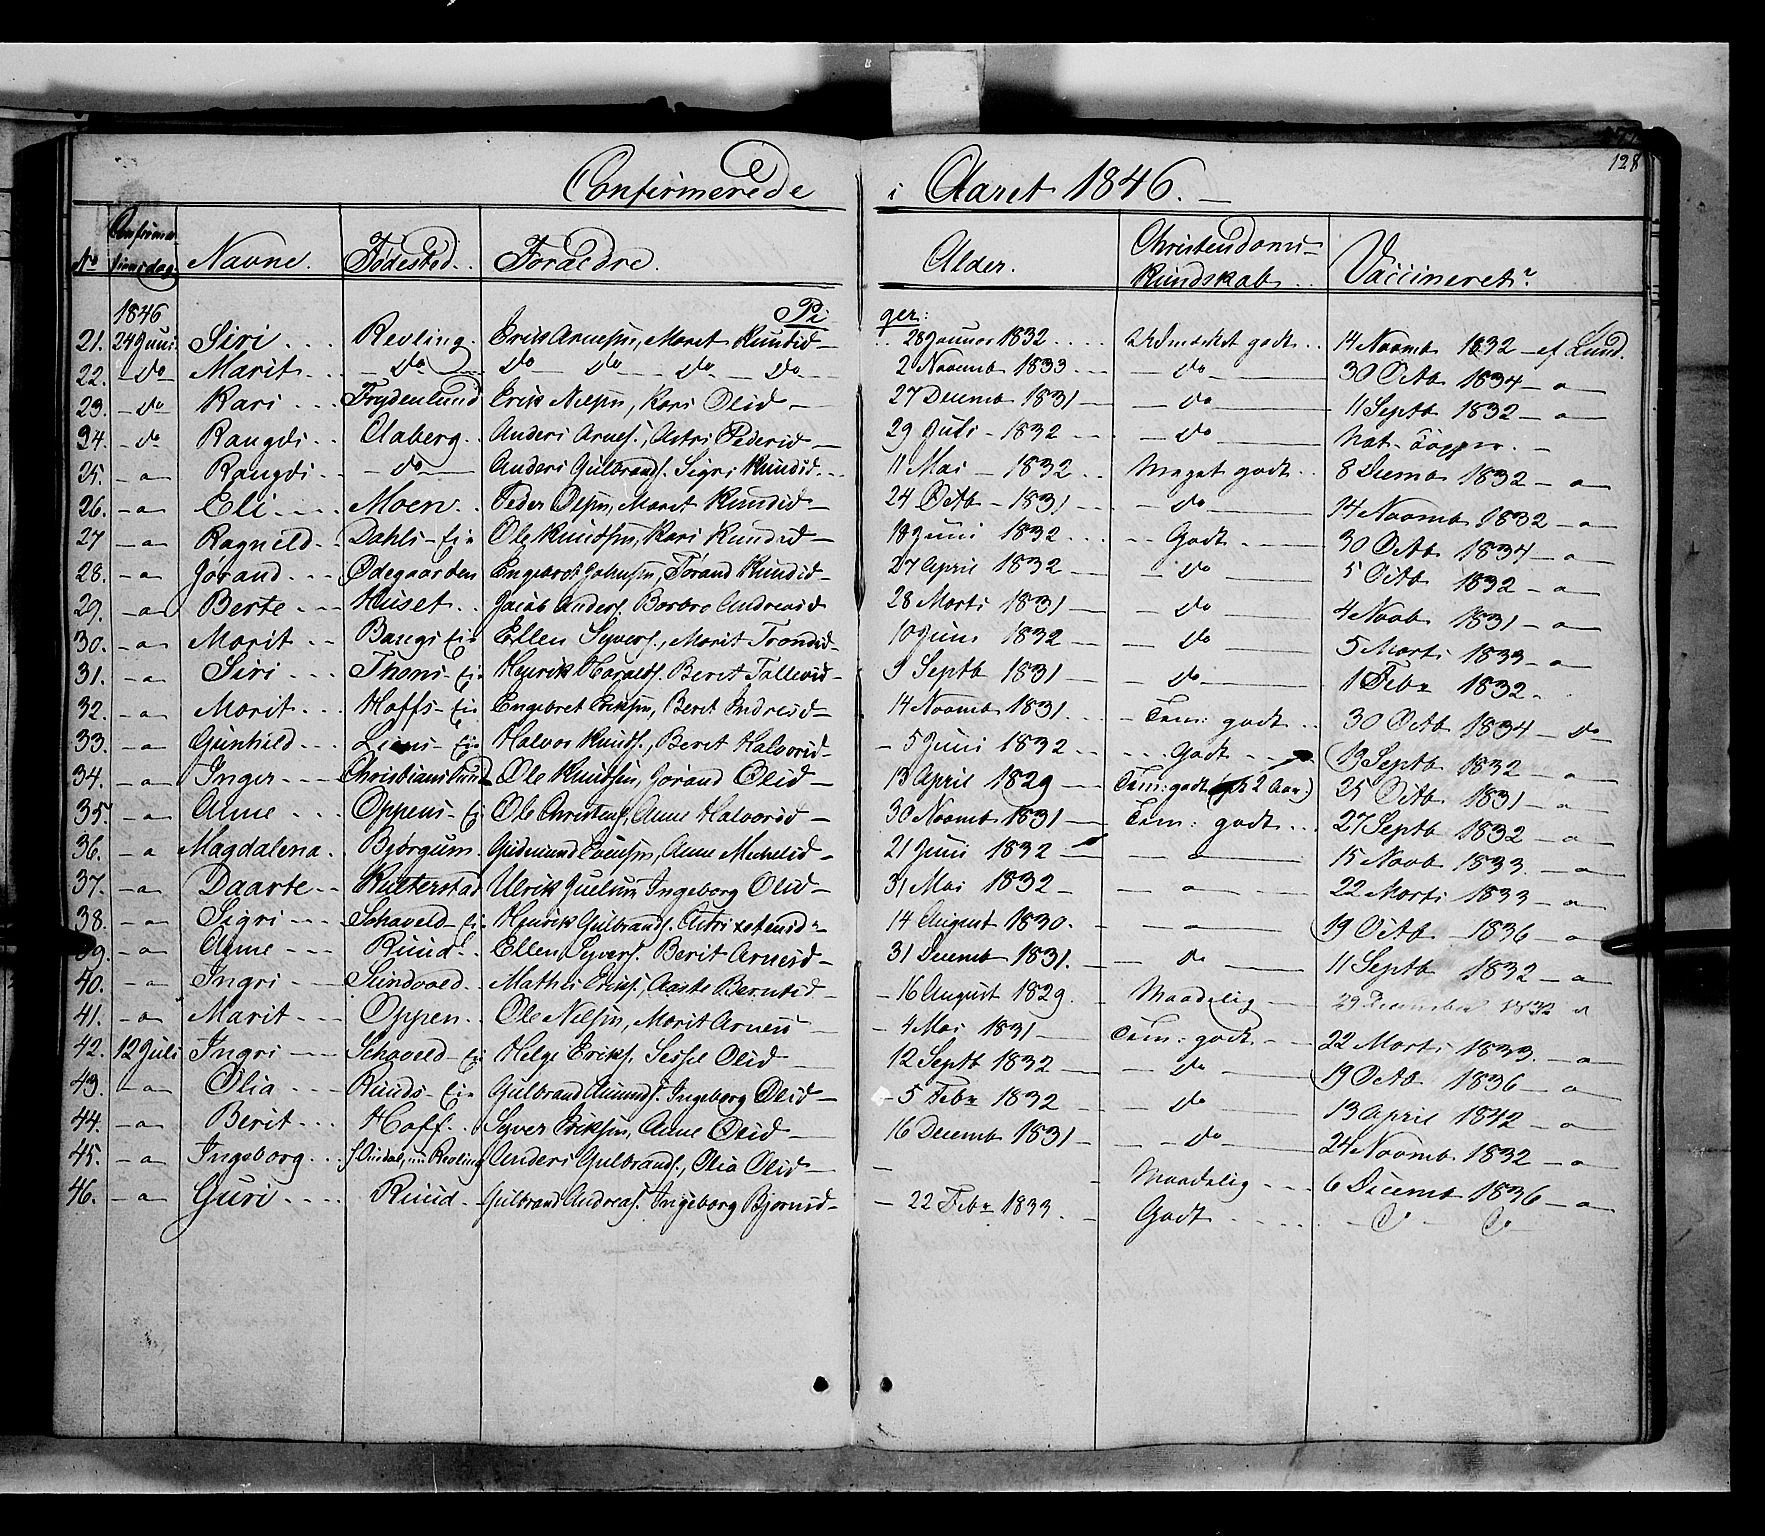 128
Confirmerede i Aaret 1846.
No Confirmationsdag Navne. Fødested. Forældre. Alder. Christendoms-Kundskab. Vaccineret?
1846 Piger:
21. 24 Juni Siri Revling. Erik Arnesen, Marit Knudsd 28 Januar 1832 Udmærket godt 14 Novemb 1832 af Lund.
22. do Marit do do do do do 2 Novemb 1833 do 30 Octb 1834 a
23. do Kari Frydenlund Erik Nilsen, Kari Olsd 27 Decemb 1831 do 11 Septb 1832 a
24. do Rangdi Aaberg. Anders Arnes., Astri Pedersd 29 Juli 1832 do Nat. Kopper.
25. a Rangdi do Anders Gulbrands. Sigri Knudsd. 11 Mai 1832 Meget godt 8 Decemb 1832 a
26. a Eli Moen. Peder Olsen, Marit Knudsd 24 Octb 1831 do 14 Novemb 1832 a
27 a Ragnild Dahls-Eie Ole Knudsen, Kari Knudsd 18 Juni 1832 Godt 30 Octb 1834 a
28. a Jørand Ødegaarden Engebret Johnsen, Jørand Knudsd 27 April 1832 do 5 Octb 1832 a
29. a Berte Huset Jacob Anders. Barbro Andreasd 28 Marts 1831 do 4 Novb 1831 a
30. a Marit Bangs Eie Ellen Syvers., Marit Trondsd 10 Juni 1832 do 5 Marts 1833 a
31. a Siri Thons-Eie Henrik Haralds. Berit Tollevsd 9 Septb 1831 do 1 Febr 1832.
32. a Marit Hoffs-Eie Engebret Eriksen, Berit Indresd 14 Novemb 1831 Tem: godt 30 Octb 1834 do
33. a Gunhild -Eie Halvor Knuds., Berit Halvorsd 5 Juni 1832 Godt 13 Septb 1832 a
34. a Inger Christianslund Ole Knudsen, Jørand Olsd 13 April 1829 Tem: godt 2 Aar) 25 Octb 1831 a
35. a Anne Oppens-Ei Ole Christens, Anne Halvorsd 30 Novemb 1831 Tem: godt 27 Septb 1832 a
36. a Magdalena. Bjørgum. Gudmund Anne Michelsd 21 Juni 1832 a 15 Novb 1833. a
37. a Daarte Ulrik Ingeborg Olsd 31 Mai 1832 a 22 Marts 1833 a
38. a Sigri Schaveld-Ei Henrik Gulbrands. Astri 14 August 1830. a 19 Octb 1836 a
39. a Anne Ruud Ellen Syvers. Berit Arnesd 31 Decemb 1831. do 11 Septb 1832 a
40. a Ingri Sundvold Mathis Eriks., Aaste Berntsd 16 August 1829. Maadelig 29 December 1832 a
41. a Marit Oppen. Ole Nilsen, Marit Arnesd 4 Mai 1831 Tem: godt 22 Marts 1833. a
42. 12 Juli Ingri Schaveld-Ei Helge Eriks. Sessel Olsd 12 Septb 1832 do 19 Octb 1836 a
43. a Olia Ruuds-Eie Gulbrand Amunds. Ingeborg Olsd 5 Febr 1832 do 13 April 1842 a
44. a Berit Hoff. Syver Eriksen, Anne Olsd 16 Decemb 1831 do 24 Novemb. 1832 a
45. a Ingeborg Revling Anders Gulbrands., Olia Olsd Maadelig 6 Decemb 1836 a
46. a Guri Ruud Gulbrand Andreas. Ingeborg Bjørnsd 22 Febr 1833. Godt do do